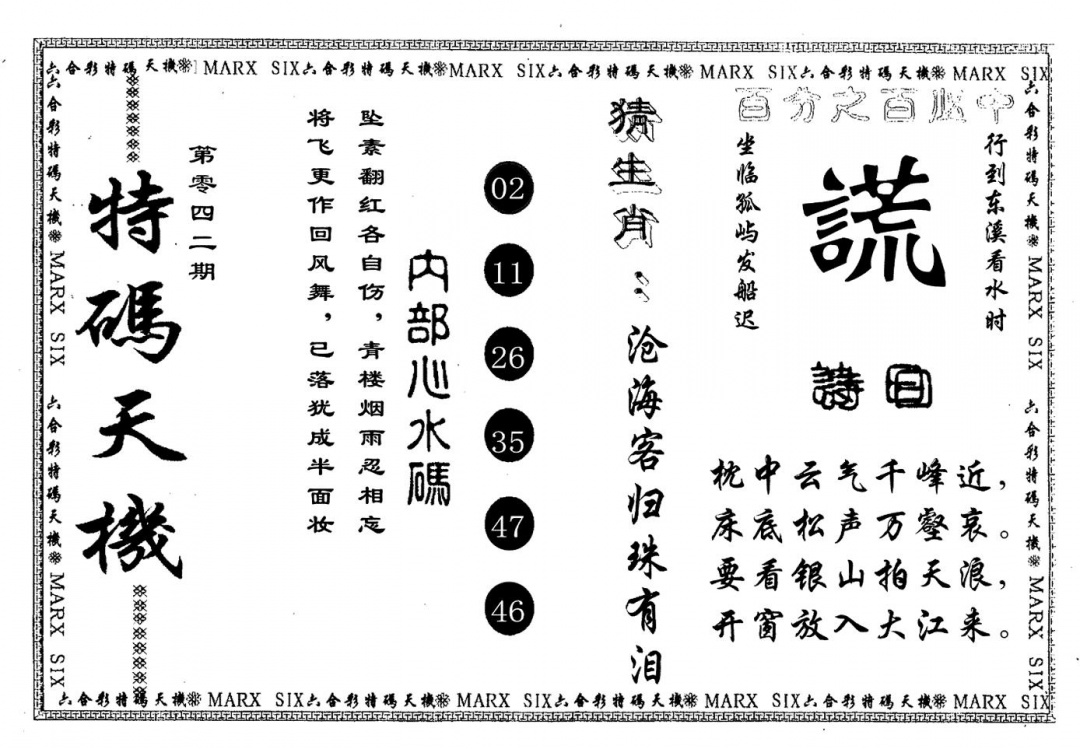 六合彩特碼天機 MARX SIX六合彩特碼天機MARX SIX六合彩特碼天機 MARX SIX六合彩特碼天機 MARX SIX
六合彩特碼天機 MARX SIX 六合彩特碼天機 MARX SIX
百分之百必中
行到东溪看水时
謊
坐临孤屿发船迟
詩曰
枕中云气千峰近，
床底松声万壑哀。
要看银山拍天浪，
开窗放入大江来。
猜生肖：沧海客归珠有泪
02
11
26
35
47
46
内部心水碼
坠素翻红各自伤，青楼烟雨忍相忘
将飞更作回风舞，已落犹成半面妆
第零四二期
特碼天機
六合彩特碼天機 MARX SIX 六合彩特碼天機 MARX SIX
六合彩特碼天機 MARX SIX六合彩特碼天機 MARX SIX六合彩特碼天機 MARX SIX六合彩特碼天機 MARX SIX